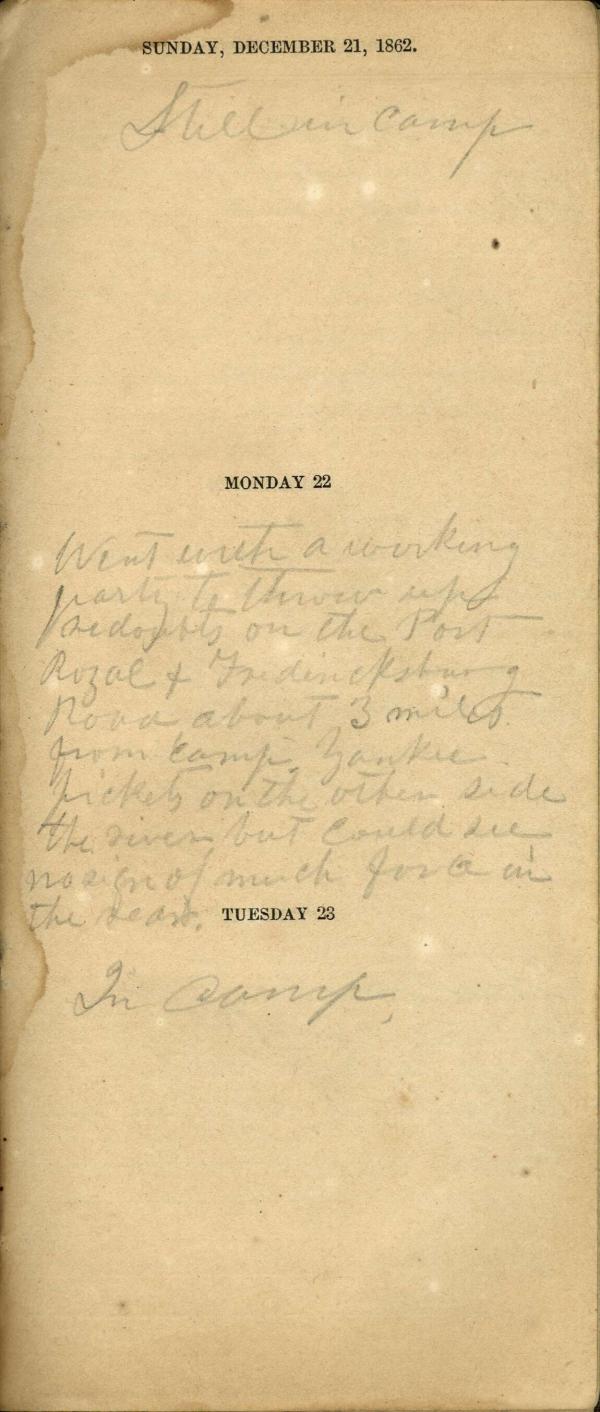 SUNDAY, DECEMBER 21, 1862.
Still in camp
MONDAY 22
Went with a working
party to throw up
redoubts on the Port
Royal & Fredericksburg
Road about 3 miles
from camp. Yankee
pickets on the other side
the river but could see
no sign of much force in
the rear.
TUESDAY 23
In camp,